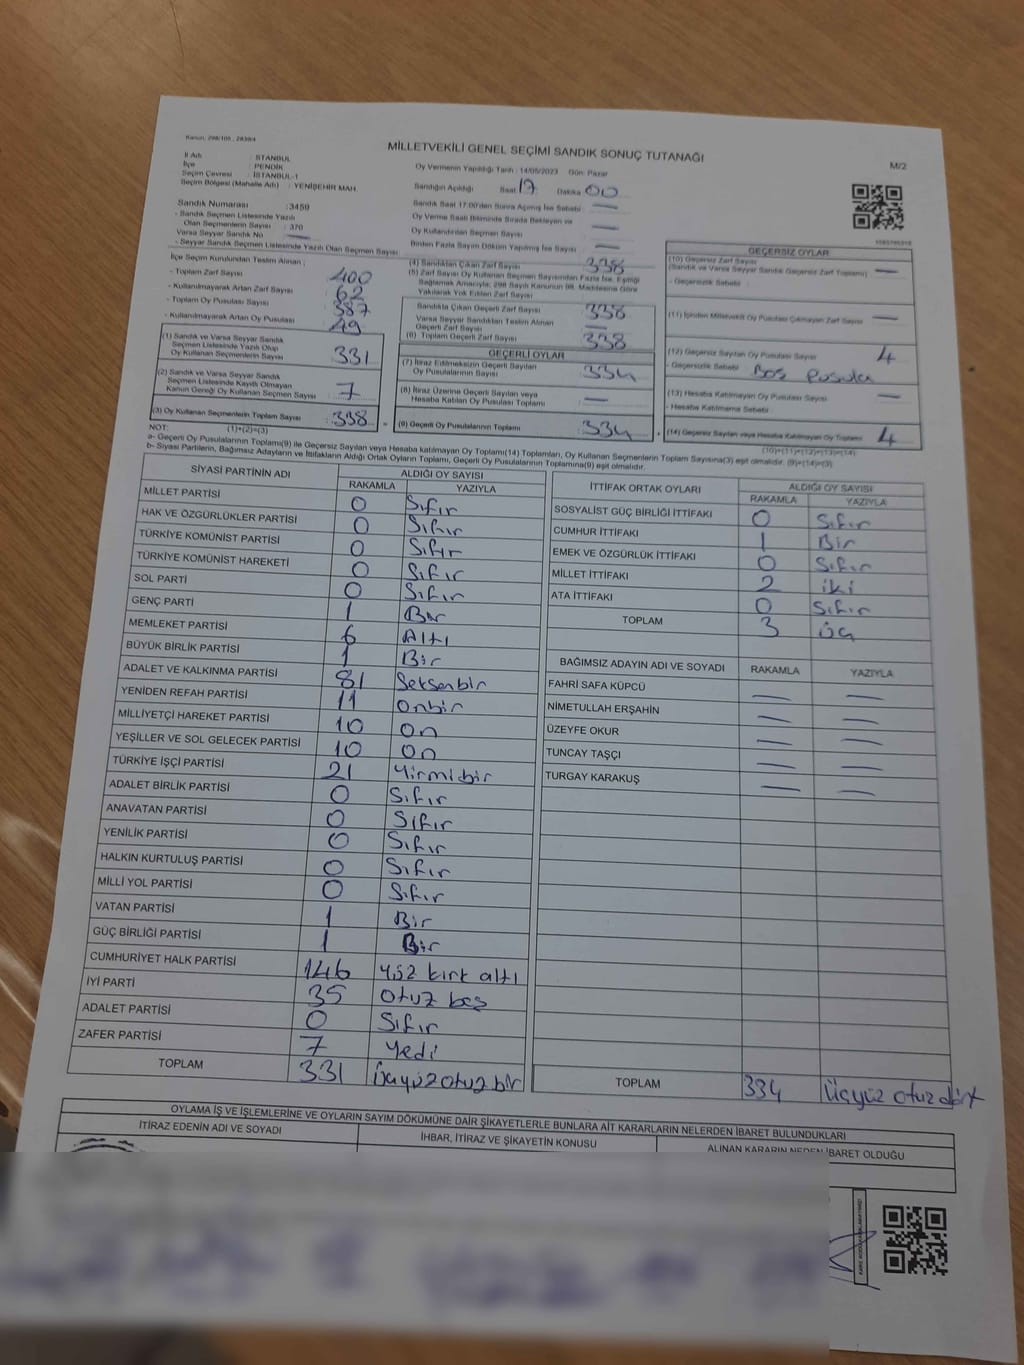 Kanun, 298/105 , 2839/4
MİLLETVEKİLİ GENEL SEÇİMİ SANDIK SONUÇ TUTANAĞI
M/2
İl Adı : İSTANBUL
İlçe : PENDİK
Seçim Çevresi : İSTANBUL-1
Seçim Bölgesi (Mahalle Adı) : YENİŞEHİR MAH.
Oy Vermenin Yapıldığı Tarih : 14/05/2023 Gün: Pazar
Sandığın Açıldığı Saat 17 Dakika 00
Sandık Saat 17.00'den Sonra Açılmış İse Sebebi : —
Oy Verme Saati Bitiminde Sırada Bekleyen ve
Oy Kullandırılan Seçmen Sayısı : —
Birden Fazla Sayım Döküm Yapılmış İse Sayısı : —
Sandık Numarası : 3459
- Sandık Seçmen Listesinde Yazılı
Olan Seçmenlerin Sayısı : 370
Varsa Seyyar Sandık No —
- Seyyar Sandık Seçmen Listesinde Yazılı Olan Seçmen Sayısı
İlçe Seçim Kurulundan Teslim Alınan ;
- Toplam Zarf Sayısı : 400
- Kullanılmayarak Artan Zarf Sayısı : 62
- Toplam Oy Pusulası Sayısı : 387
- Kullanılmayarak Artan Oy Pusulası : 49
(1) Sandık ve Varsa Seyyar Sandık
Seçmen Listesinde Yazılı Olup
Oy Kullanan Seçmenlerin Sayısı : 331
(2) Sandık ve Varsa Seyyar Sandık
Seçmen Listesinde Kayıtlı Olmayan
Kanun Gereği Oy Kullanan Seçmen Sayısı : 7
(3) Oy Kullanan Seçmenlerin Toplam Sayısı : 338
(4) Sandıktan Çıkan Zarf Sayısı : 338
(5) Zarf Sayısı Oy Kullanan Seçmen Sayısından Fazla İse, Eşitliği
Sağlamak Amacıyla; 298 Sayılı Kanunun 98. Maddesine Göre
Yakılarak Yok Edilen Zarf Sayısı
Sandıkta Çıkan Geçerli Zarf Sayısı : 338
Varsa Seyyar Sandıktan Teslim Alınan
Geçerli Zarf Sayısı : —
(6) Toplam Geçerli Zarf Sayısı : 338
GEÇERLİ OYLAR
(7) İtiraz Edilmeksizin Geçerli Sayılan
Oy Pusulalarının Sayısı : 334
(8) İtiraz Üzerine Geçerli Sayılan veya
Hesaba Katılan Oy Pusulası Toplamı : —
(9) Geçerli Oy Pusulalarının Toplamı : 334
GEÇERSİZ OYLAR
(10) Geçersiz Zarf Sayısı
(Sandık ve Varsa Seyyar Sandık Geçersiz Zarf Toplamı) : —
- Geçersizlik Sebebi :
(11) İçinden Milletvekili Oy Pusulası Çıkmayan Zarf Sayısı : —
(12) Geçersiz Sayılan Oy Pusulası Sayısı : 4
- Geçersizlik Sebebi : Boş pusula
(13) Hesaba Katılmayan Oy Pusulası Sayısı : —
- Hesaba Katılmama Sebebi :
(14) Geçersiz Sayılan veya Hesaba Katılmayan Oy Toplamı : 4
NOT: (1)+(2)=(3) (10)+(11)+(12)+(13)=(14)
a- Geçerli Oy Pusulalarının Toplamı(9) ile Geçersiz Sayılan veya Hesaba katılmayan Oy Toplamı(14) Toplamları, Oy Kullanan Seçmenlerin Toplam Sayısına(3) eşit olmalıdır. (9)+(14)=(3)
b- Siyasi Partilerin, Bağımsız Adayların ve İttifakların Aldığı Ortak Oyların Toplamı, Geçerli Oy Pusulalarının Toplamına(9) eşit olmalıdır.
SİYASİ PARTİNİN ADI ALDIĞI OY SAYISI
RAKAMLA YAZIYLA
MİLLET PARTİSİ 0 Sıfır
HAK VE ÖZGÜRLÜKLER PARTİSİ 0 Sıfır
TÜRKİYE KOMÜNİST PARTİSİ 0 Sıfır
TÜRKİYE KOMÜNİST HAREKETİ 0 Sıfır
SOL PARTİ 0 Sıfır
GENÇ PARTİ 1 Bir
MEMLEKET PARTİSİ 6 Altı
BÜYÜK BİRLİK PARTİSİ 1 Bir
ADALET VE KALKINMA PARTİSİ 81 Seksenbir
YENİDEN REFAH PARTİSİ 11 Onbir
MİLLİYETÇİ HAREKET PARTİSİ 10 On
YEŞİLLER VE SOL GELECEK PARTİSİ 10 On
TÜRKİYE İŞÇİ PARTİSİ 21 Yirmibir
ADALET BİRLİK PARTİSİ 0 Sıfır
ANAVATAN PARTİSİ 0 Sıfır
YENİLİK PARTİSİ 0 Sıfır
HALKIN KURTULUŞ PARTİSİ 0 Sıfır
MİLLİ YOL PARTİSİ 0 Sıfır
VATAN PARTİSİ 1 Bir
GÜÇ BİRLİĞİ PARTİSİ 1 Bir
CUMHURİYET HALK PARTİSİ 146 Yüz kırk altı
İYİ PARTİ 35 Otuz beş
ADALET PARTİSİ 0 Sıfır
ZAFER PARTİSİ 7 Yedi
TOPLAM 331 Üçyüz otuz bir
İTTİFAK ORTAK OYLARI ALDIĞI OY SAYISI
RAKAMLA YAZIYLA
SOSYALİST GÜÇ BİRLİĞİ İTTİFAKI 0 Sıfır
CUMHUR İTTİFAKI 1 Bir
EMEK VE ÖZGÜRLÜK İTTİFAKI 0 Sıfır
MİLLET İTTİFAKI 2 iki
ATA İTTİFAKI 0 Sıfır
TOPLAM 3 Üç
BAĞIMSIZ ADAYIN ADI VE SOYADI RAKAMLA YAZIYLA
FAHRİ SAFA KÜPCÜ — —
NİMETULLAH ERŞAHİN — —
ÜZEYFE OKUR — —
TUNCAY TAŞÇI — —
TURGAY KARAKUŞ — —
TOPLAM 334 Üçyüz otuz dört
OYLAMA İŞ VE İŞLEMLERİNE VE OYLARIN SAYIM DÖKÜMÜNE DAİR ŞİKAYETLERLE BUNLARA AİT KARARLARIN NELERDEN İBARET BULUNDUKLARI
İTİRAZ EDENİN ADI VE SOYADI İHBAR, İTİRAZ VE ŞİKAYETİN KONUSU ALINAN KARARIN NEDEN İBARET OLDUĞU